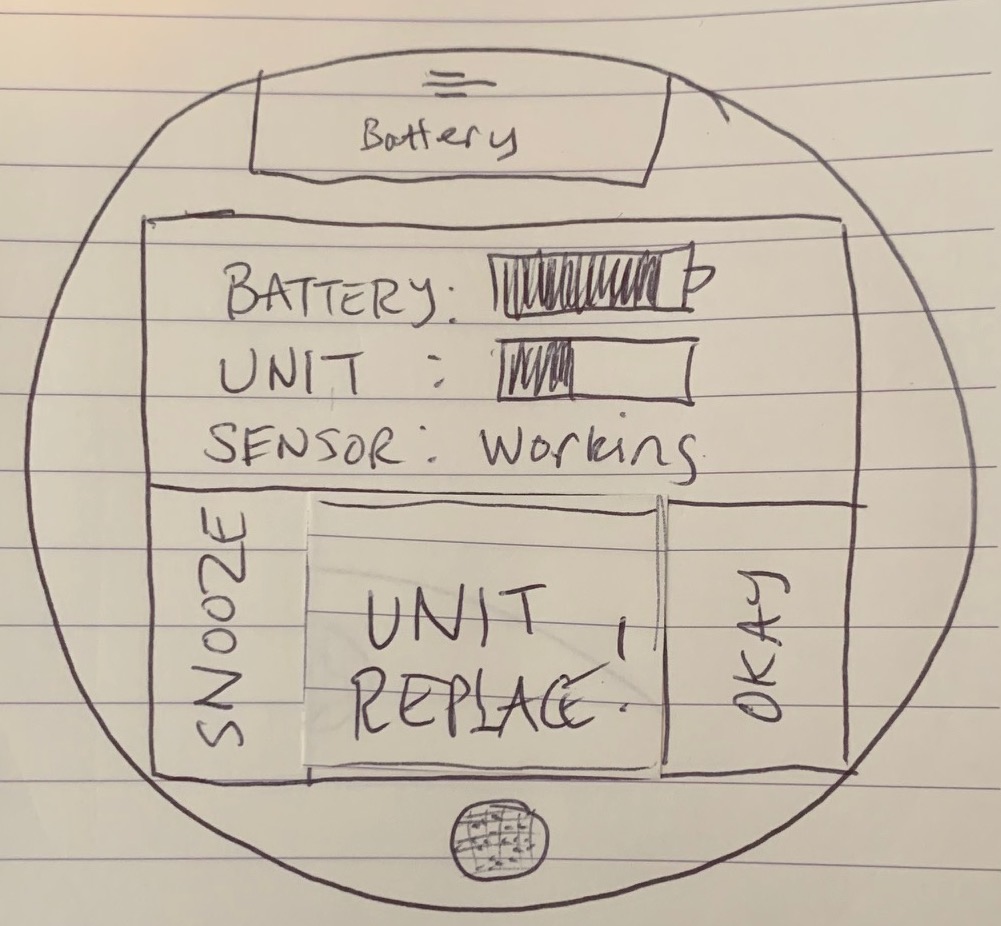 Battery
BATTERY:
UNIT :
SENSOR: Working
SNOOZE
UNIT
REPLACE!
OKAY